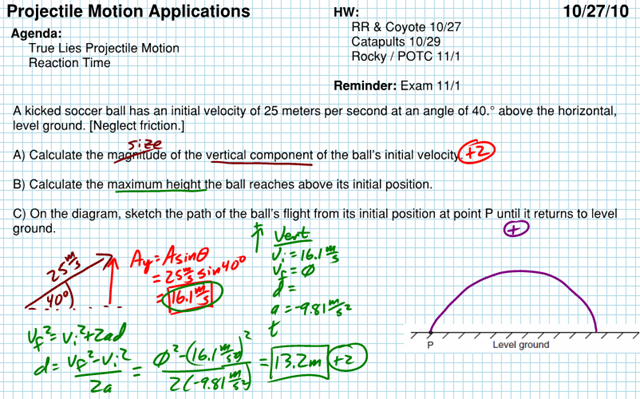 Projectile Motion Applications
HW:
10/27/10
RR & Coyote 10/27
Catapults 10/29
Rocky / POTC 11/1
Agenda:
True Lies Projectile Motion
Reaction Time
Reminder: Exam 11/1
A kicked soccer ball has an initial velocity of 25 meters per second at an angle of 40.° above the horizontal,
level ground. [Neglect friction.]
size
A) Calculate the magnitude of the vertical component of the ball's initial velocity. +2
B) Calculate the maximum height the ball reaches above its initial position.
C) On the diagram, sketch the path of the ball's flight from its initial position at point P until it returns to level
ground.
+
25 m/s
40°
Ay = A sinθ
= 25 m/s sin 40°
= 16.1 m/s
+
Vert
vi = 16.1 m/s
vf = ϕ
d =
a = -9.81 m/s²
t
vf² = vi² + 2ad
d = vf² - vi² / 2a = ϕ² - (16.1 m/s)² / 2(-9.81 m/s²) = 13.2m +2
P Level ground